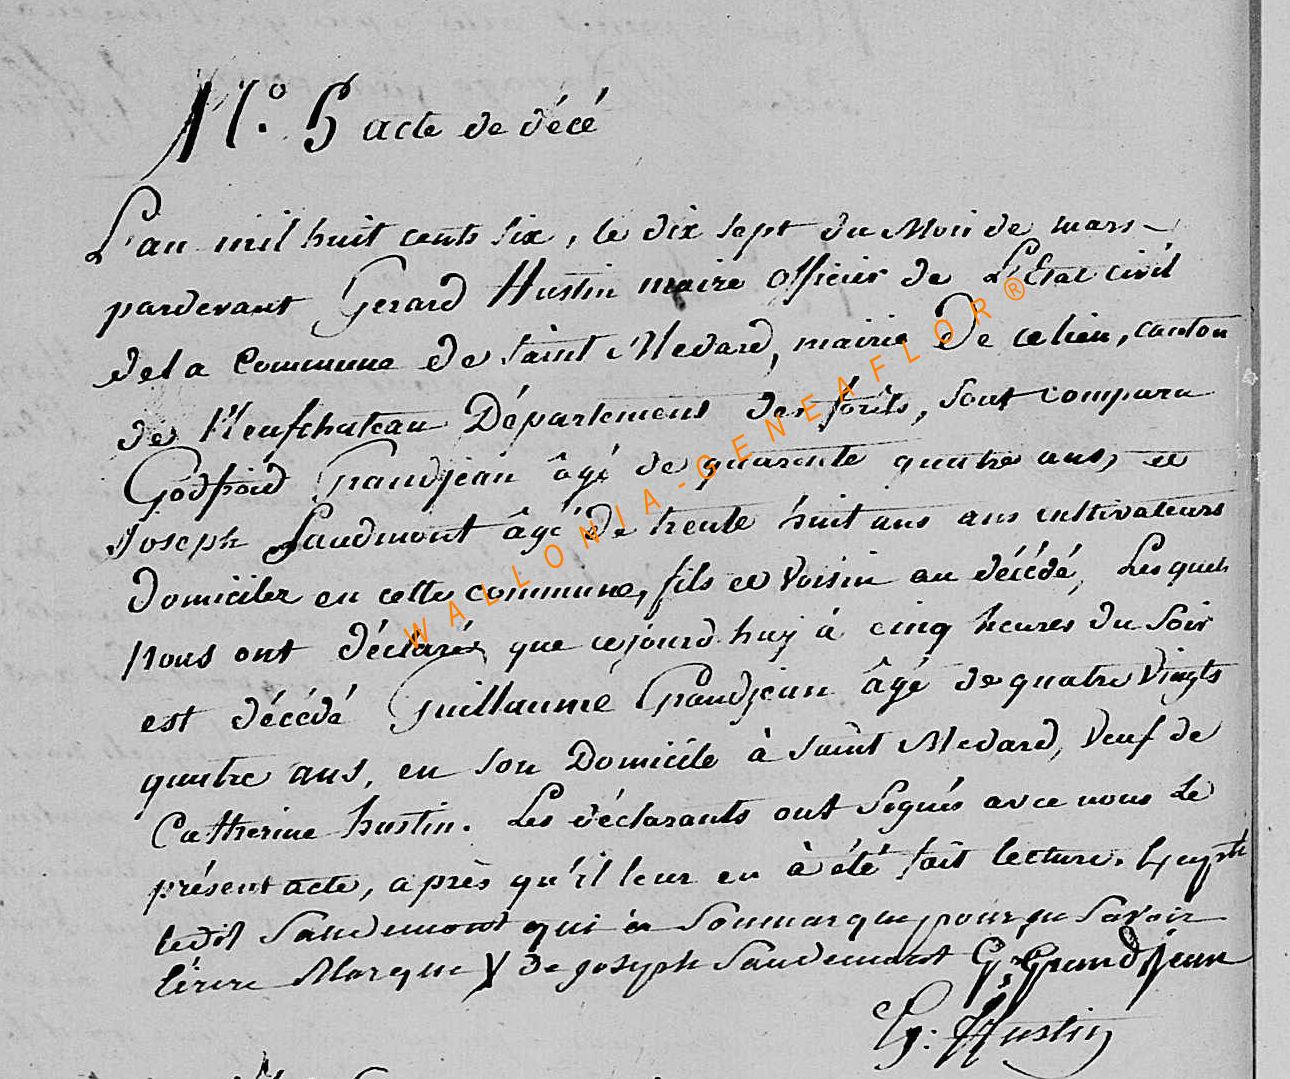 N.o 5 acte de décé
L'an mil huit cents six, le dix sept du Mois de mars
pardevant Gerard Hustin maire officier de L'Etat civil
de la Commune de Saint Medard, mairie de ce lieu, canton
de Neufchateau Département des forêts, sont comparu
Godfroid Grandjean âgé de quarente quatre ans, et
Joseph Saudmont âgé de trente huit ans ans cultivateurs
domiciliez en cette commune, fils et voisin au décédé, Lesquels
nous ont déclarés que cejourd huy à cinq heures du soir
est décédé Guillaume Grandjean âgé de quatre Vingts
quatre ans, en son Domicile à saint Medard, veuf de
Catherine hustin. Les déclarants ont Signés avec nous Le
présent acte, après qu'il leur en à été fait lecture.
ledit Saudemont qui à sa marque pour ne Savoir
Ecrire Marque X de joseph Saudemont G: Grandjean
G: Hustin
WALLONIA-GENEAFLOR®